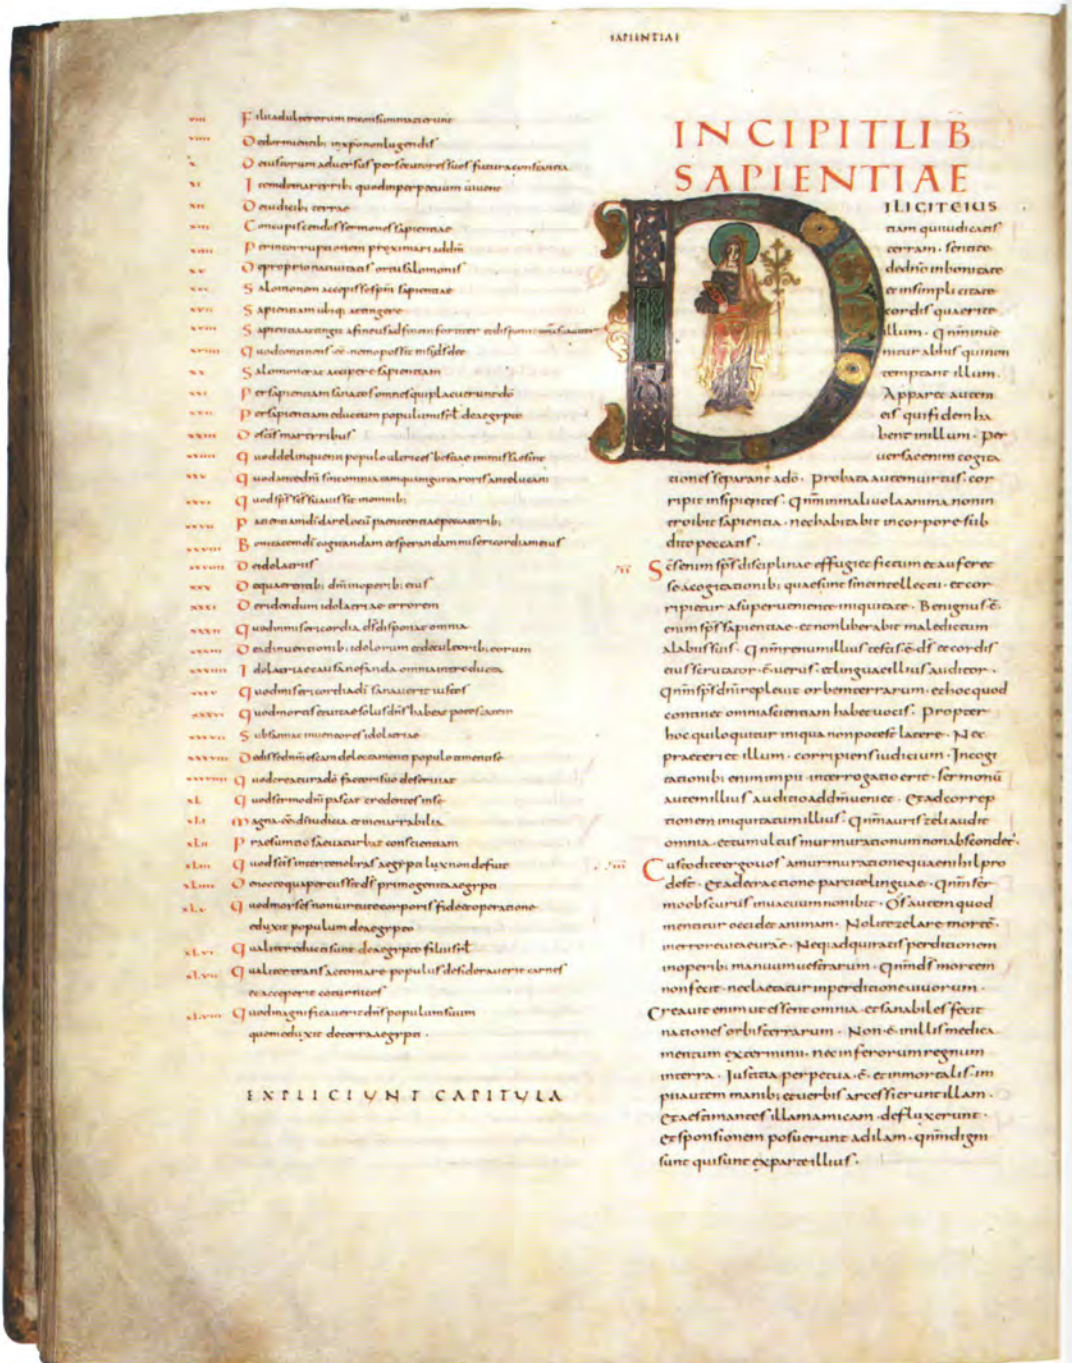 SAPIENTIAE
viii Filii adulterorum inconsummati erunt
viiii De dormientib; in xp̄o non lugendis
x De iustorum adversus persecutores suos futura constantia
xi Item de martyrib; quod in perpetuum vivent
xii De iudicib; terrae
xiii Concupiscendos sermones sapientiae
xiiii Per incorruptionem proximari ad dm̄
xv De propria nativitatis ortu salomonis
xvi Salomonem accepisse spm̄ sapientiae
xvii Sapientiam ubiq; attingere
xviii Sapientia attingit a fine usq; ad finem fortiter et disponit omnia suaviter
xviiii Quod continens ē nemo possit nisi ds̄ det
xx Salomon
xxi Per sapientiam sanatos omnes qui placuerunt dō
xxii Per sapientiam eductum populum isrl̄ de aegypto
xxiii De scīs martyribus
xxiiii Quod delinquenti populo ultrices bestiae inmissae sint
xxv Quod ante dm̄ sint omnia tamquam gutta roris antelucani
xxvi Quod sps̄
xxvii Patientiam dī dare locum paenitentiae peccatorib;
xxviii Bonitatem dī cogitandam et sperandam misericordiam eius
xxviiii De idolatris
xxx De quaerentib; dm̄ in operib; eius
xxxi Deridendum idolatriae errorem
xxxii Quod in misericordia ds̄ disponat omnia
xxxiii De adinventionib; idolorum et de cultorib; eorum
xxxiiii Idolatriae causa nefanda omnia introducta
xxxv Quod misericordia dī sanaverit iustos
xxxvi Quod mortis et vitae solus dn̄s habeat potestatem
xxxvii Substantiae inventores idolatriae
xxxviii Dedisse dm̄ escam delectamenti populo timenti se
xxxviiii Quod creatura dō factori suo deserviat
xL Quod sermo dn̄i pascat credentes in se
xLi Magna eē dī iudicia et inenarrabilia
xLii Praesumtio saeva turbat conscientiam
xLiii Quod scīs inter tenebras aegypti lux non defuit
xLiiii De nocte qua percussit ds̄ primogenita aegypti
xLv Quod moyses non virtute corporis fide et operatione
eduxit populum de aegypto
xLvi Qualiter educti sunt de aegypto filii isrl̄
xLvii Qualiter transacto mare populus desideraverit carnes
et acceperit coturnices
xLviii Quod magnificaverit dn̄s populum suum
quem eduxit de terra aegypti ·
EXPLICIUNT CAPITULA
INCIPIT LIB̄
SAPIENTIAE
D ILIGITE IUS
tiam qui iudicatis
terram · sentite
de dn̄o in bonitate
et in simplicitate
cordis quaerite
illum · Qnm̄ inve
nitur ab his qui non
temptant illum ·
Apparet autem
eis qui fidem ha
bent in illum · Per
versae enim cogita
tiones separant a dō · Probata autem virtus · cor
ripit insipientes · Qnm̄ in malivola anima non in
troibit sapientia · nec habitabit in corpore sub
dito peccatis ·
vii Scs̄ enim sps̄ disciplinae effugiet fictum et auferet
se a cogitationib; quae sunt sine intellectu · et cor
ripietur a superveniente iniquitate · Benignus ē
enim sps̄ sapientiae · et non liberabit maledictum
a labiis suis · Qnm̄ renum illius testis ē ds̄ et cordis
eius scrutator · ē verus · et linguae illius auditor ·
Qnm̄ sps̄ dn̄i replevit orbem terrarum · et hoc quod
continet omnia scientiam habet vocis · Propter
hoc qui loquitur iniqua non potest latere · Nec
praeteriet illum · corripiens iudicium · In cogi
tationib; enim impii · interrogatio erit · sermonū
autem illius auditio ad dm̄ veniet · Et ad correp
tionem iniquitatum illius · Qnm̄ auris zeli audit
omnia · et tumultus murmurationum non abscondet̄ ·
viii Custodite ergo vos a murmuratione quae nihil pro
dest · Et a detractione parcite linguae · Qnm̄ ser
mo obscurus in vacuum non ibit · Os autem quod
mentitur occidet animam · Nolite zelare mortē ·
in errore vitae vrāe · Neq; adquiratis perditionem
in operib; manuum vestrarum · Qnm̄ ds̄ mortem
non fecit · nec laetatur in perditione vivorum ·
Creavit enim ut essent omnia · et sanabiles fecit
nationes orbis terrarum · Non ē in illis medica
mentum exterminii · nec inferorum regnum
in terra · Iustitia perpetua · ē · et inmortalis · im
pii autem manib; et verbis arcessierunt illam ·
Et aestimantes illam amicam · defluxerunt ·
et sponsionem posuerunt ad ilam · qnm̄ digni
sunt qui sunt ex parte illius ·